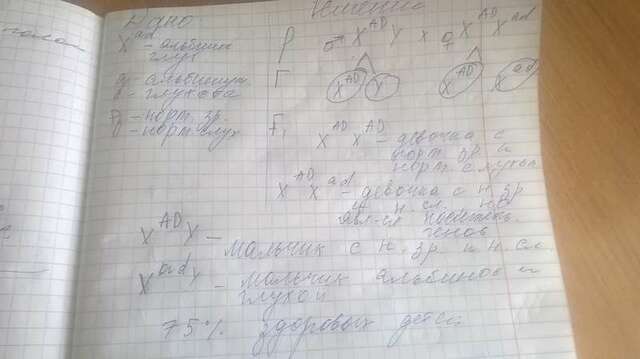 Дано
Решение
X^ad - альбинизм
глух
a - альбинизм
d - глухота
A - норм. зр.
D - норм. слух
P ♂ X^AD Y x ♀ X^AD X^ad
Г X^AD Y X^AD X^ad
F1 X^AD X^AD - девочка с
норм. зр. и
норм. слухом
X^AD X^ad - девочка с н. зр
и н. сл. но
явл-ся носитель.
генов
X^AD Y - мальчик с н. зр и н. сл.
X^ad Y - мальчик альбинос и
глухой
75% здоровых детей